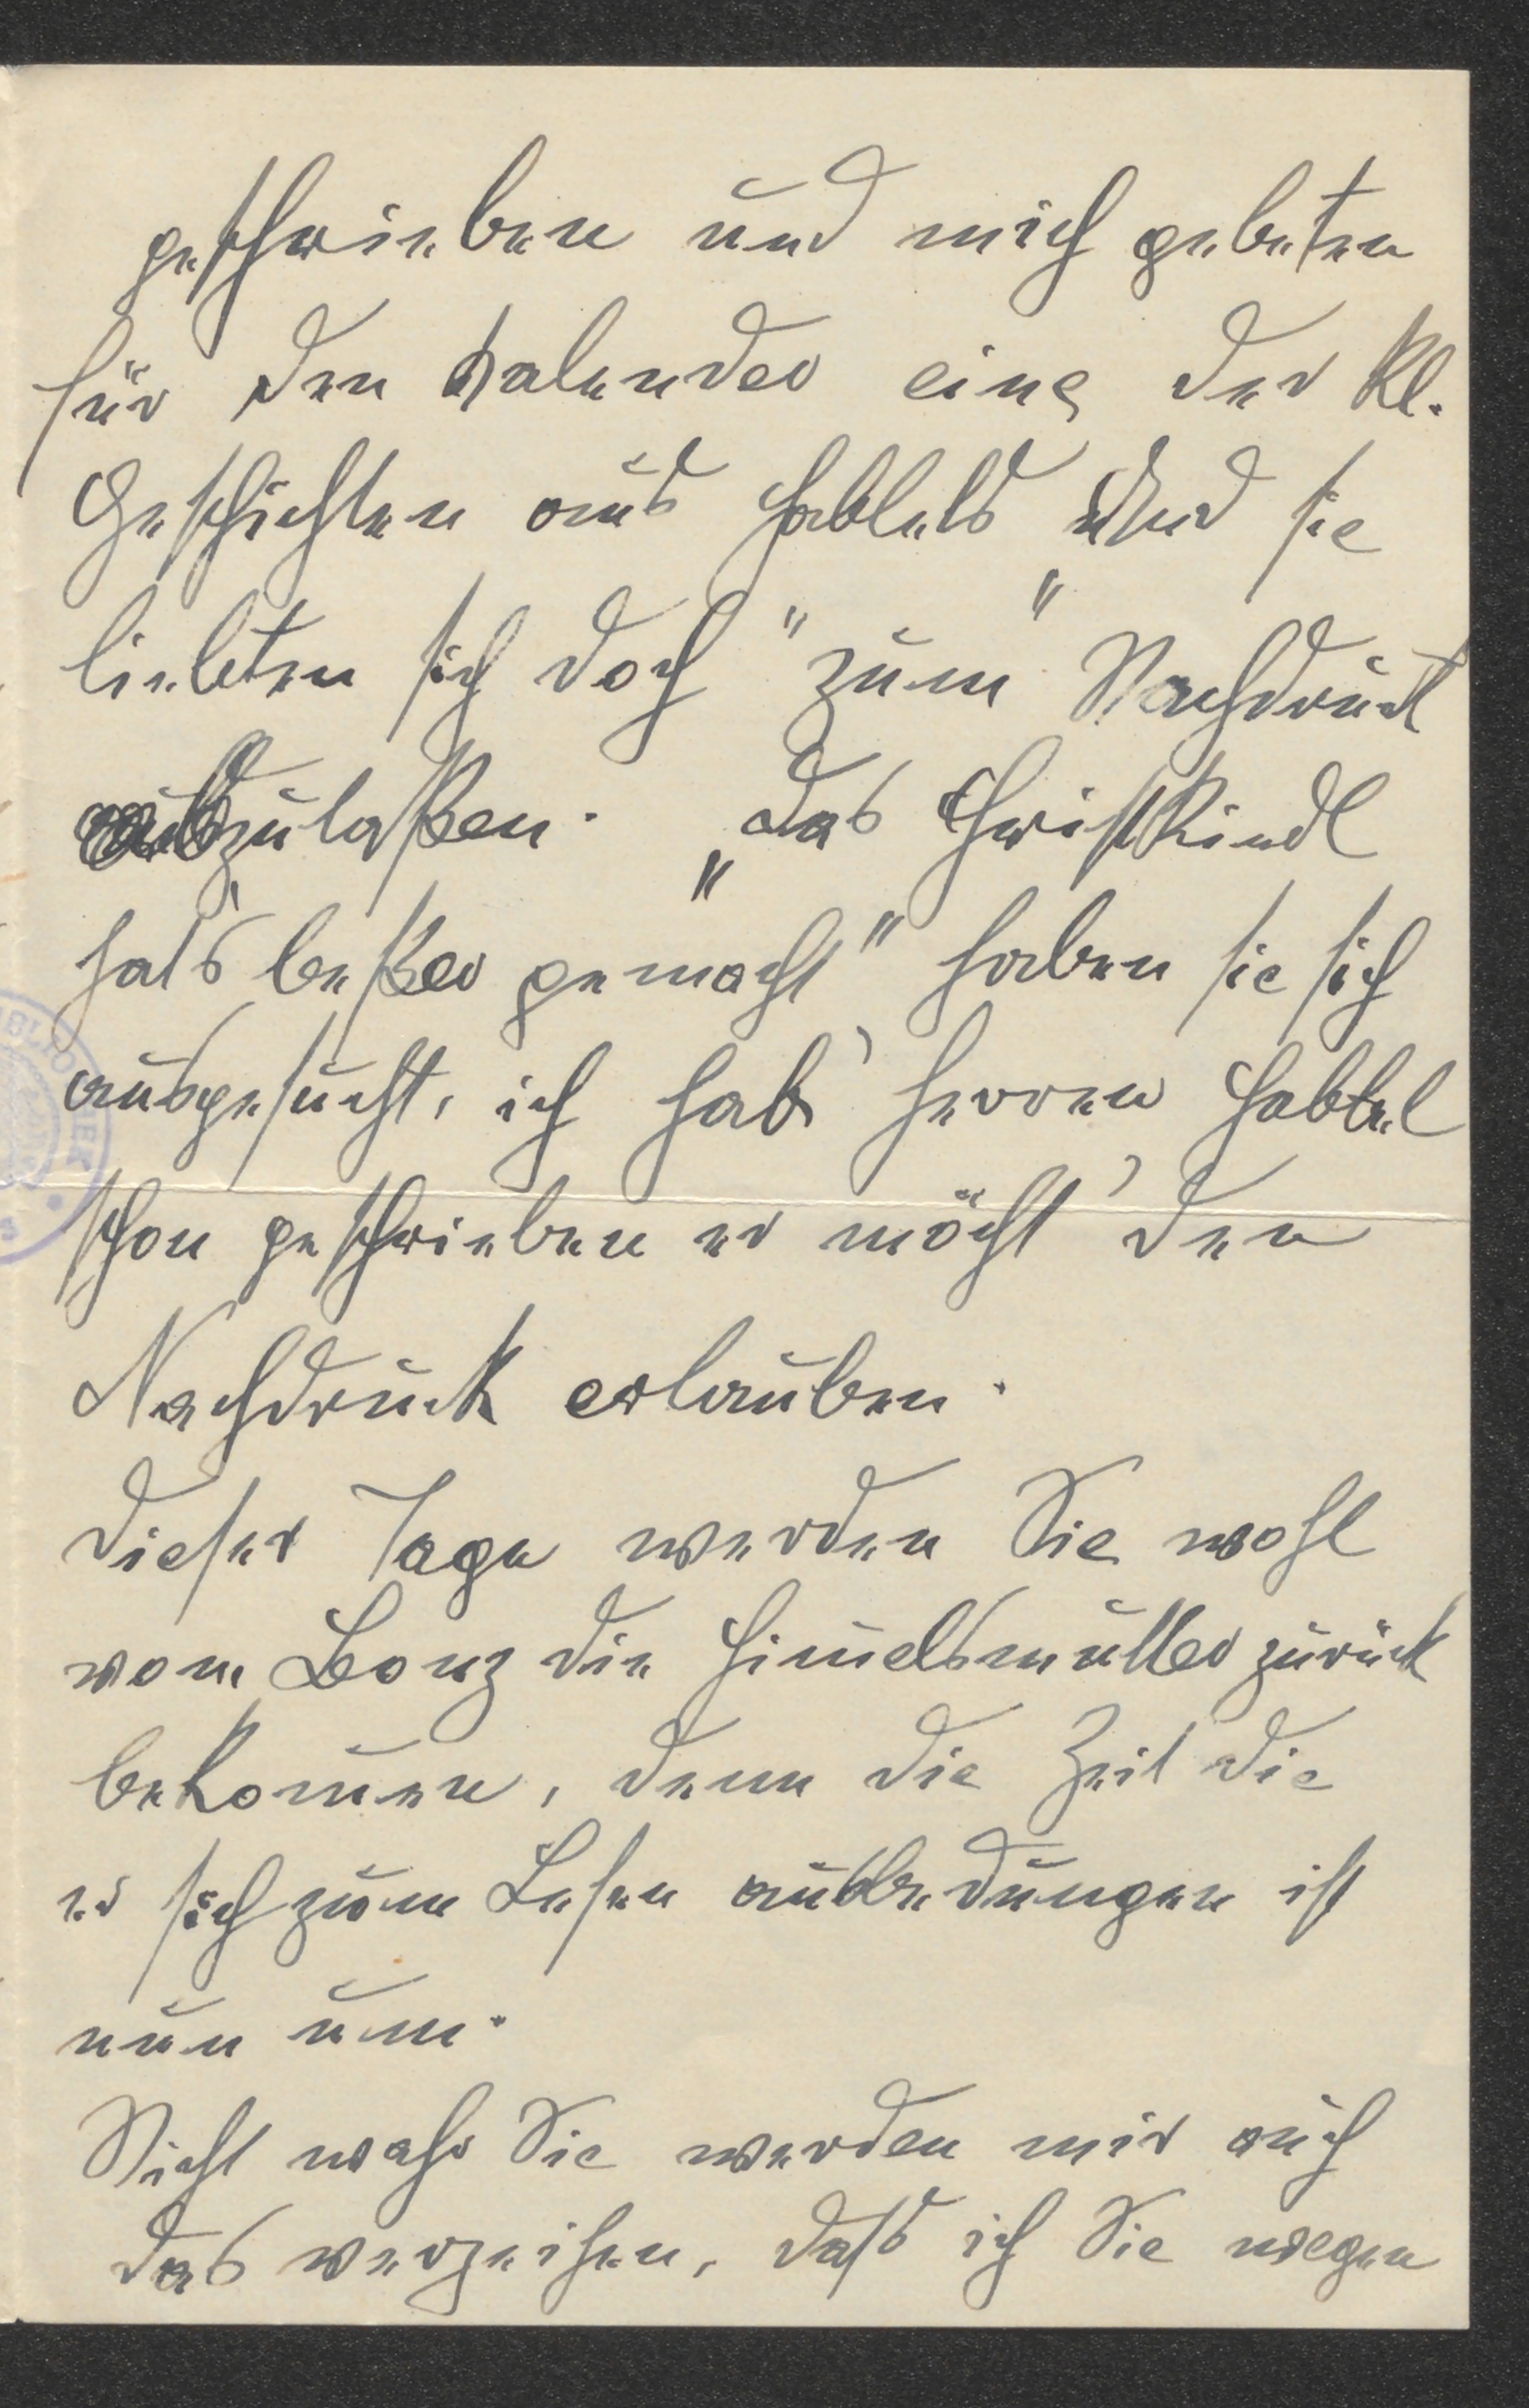 geschrieben und mich gebeten
für den Kalender eine der kl.
Geschichten aus Habbels „Und sie
liebten sich doch" zum Nachdruck
zulaßen. „Das Christkindl
hat's beßer gemacht" haben sie sich
ausgesucht, ich hab' Herren Habbel
schon geschrieben er möcht' den
Nachdruck erlauben.
Dieser Tage werden Sie wohl
vom Bonz die Himelsmutter zurück
bekomen, denn die Zeit die
er sich zum Lesen ausbedungen ist
nun um.
Nicht wahr Sie werden mir auch
das verzeihen, dass ich Sie wegen